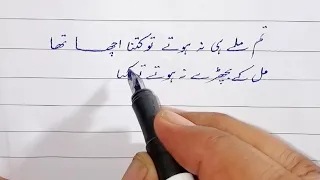 تم ملے ہی نہ ہوتے تو کتنا اچھا تھا
مل کے بچھڑے نہ ہوتے تو